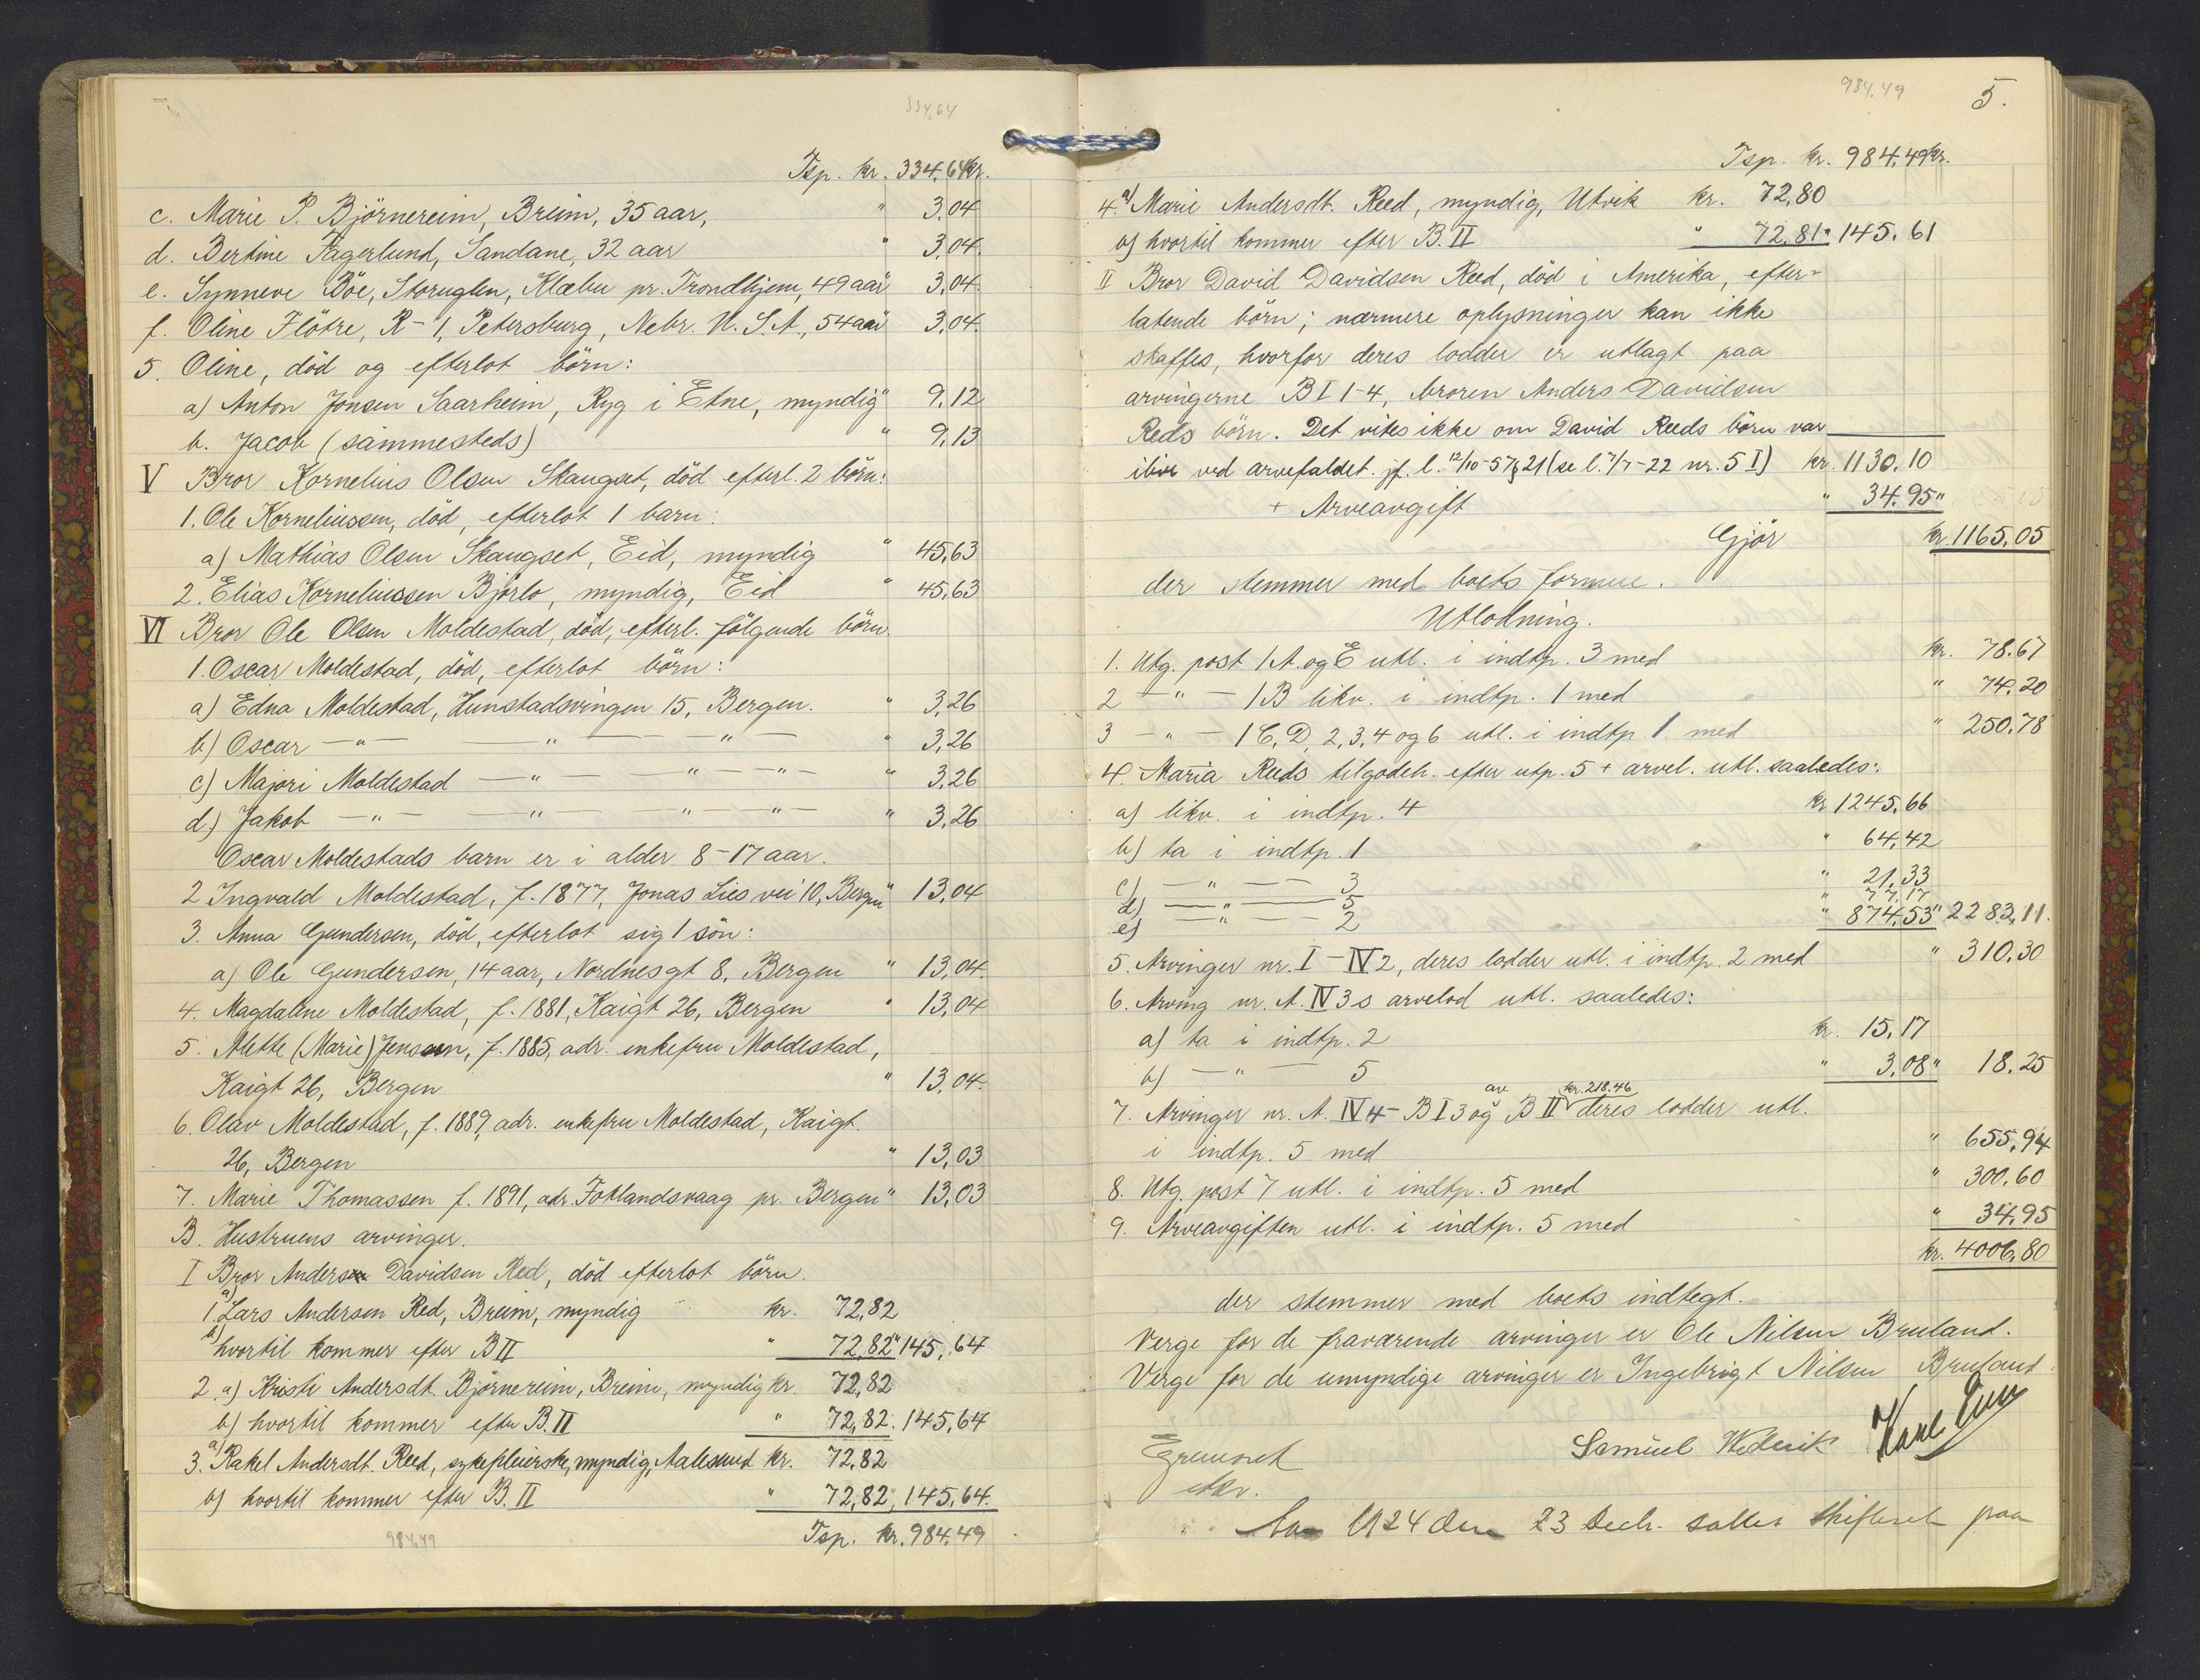 334,64
Tsp. kr. 334,64 kr.
c. Marie P. Björnereim, Breim, 35 aar, " 3,04
d. Bertine Fagerlund, Sandane, 32 aar " 3,04.
e. Synneve Böe, Storuglen, Klæbu pr. Trondhjem, 49 aar 3,04.
f. Oline Flötre, R-1, Petersburg, Nebr. U.S.A., 54 aar 3,04.
5. Oline, död og efterlot börn:
a) Anton Jonsen Saarheim, Ryg i Etne, myndig " 9,12
b. Jacob (sammesteds) " 9,13
V Bror Kornelius Olsen Skaugset, död efterl. 2 börn:
1. Ole Korneliussen, död, efterlot 1 barn:
a) Mathias Olsen Skaugset, Eid, myndig " 45,63
2. Elias Korneliussen Bjørlo, myndig, Eid " 45,63
VI Bror Ole Olsen Moldestad, död, efterl. fölgende börn.
1. Oscar Moldestad, död, efterlot börn:
a) Edna Moldestad, Hunstadsvingen 15, Bergen. " 3,26
b) Oscar — " — — " — — " — " 3,26
c) Majori Moldestad — " — " — " — " 3,26
d) Jakob — " — — " — " — " — " 3,26
Oscar Moldestads barn er i alder 8-17 aar.
2 Ingvald Moldestad, f. 1877, Jonas Lies vei 10, Bergen " 13,04
3. Anna Gundersen, död, efterlot sig 1 sön:
a) Ole Gundersen, 14 aar, Nordnesgt 8, Bergen " 13,04.
4. Magdalene Moldestad, f. 1881, Kaigt 26, Bergen " 13,04
5. Alette (Marie) Jenssen, f. 1885, adr. enkefru Moldestad,
Kaigt 26, Bergen " 13,04.
6. Olav Moldestad, f. 1889, adr. enkefru Moldestad, Kaigt.
26, Bergen " 13,03
7. Marie Thomassen f. 1891, adr. Fotlandsvaag pr. Bergen " 13,03
B. Hustruens arvinger.
I Bror Anders Davidsen Red, död efterlot börn.
1. a) Lars Andersen Red, Breim, myndig kr. 72,82
b) hvortil kommer efter B II " 72,82 " 145,64
2 a) Kristi Andersdt. Björnereim, Breim, myndig kr. 72,82
b) hvortil kommer efter B. II " 72,82. 145,64
3. a) Rakel Andersdt. Reed, sykepleierske, myndig, Aalesund kr. 72,82
b) hvortil kommer efter B. II " 72,82, 145,64.
Tsp. kr. 984,49
984,49
984,49
5.
Tsp. kr. 984,49 kr.
4. a) Marie Andersdt. Reed, myndig, Utvik kr. 72,80
b) hvortil kommer efter B. II " 72,81 " 145,61
II Bror David Davidsen Reed, död i Amerika, efter-
latende börn; nærmere oplysninger kan ikke
skaffes, hvorfor deres lodder er utlagt paa
arvingerne B I 1-4, broren Anders Davidsen
Reds börn. Det vites ikke om David Reeds börn var
ilive ved arvefaldet. jf. l. 12/10-57 § 21 (se l. 7/7-22 nr. 5 I) kr. 1130,10
+ Arveavgift " 34,95 "
Gjör kr. 1165,05
der stemmer med boets formue.
Utlodning.
1. Utg. post 1 A. og E utl. i indtp. 3 med kr. 78.67
2 — " — 1 B likv. i indtp. 1 med " 74,20
3 — " — 1 C, D, 2, 3, 4 og 6 utl. i indtp. 1 med " 250,78
4. Maria Reeds tilgodeh. efter utp. 5 + arvel. utl. saaledes:
a) likv. i indtp. 4 kr 1245,66
b) ta i indtp. 1 " 64,42
c) — " — — 3 " 21,33
d) — " — 5 " 77,17
e) — " — 2 " 874,53 " 2283,11.
5. Arvinger nr. I - IV 2, deres lodder utl. i indtp. 2 med " 310,30
6. Arving nr. A. IV 3s arvelod utl. saaledes:
a) ta i indtp. 2 kr. 15,17
b) — " — 5 " 3,08 " 18.25
7. Arvinger nr. A. IV 4 - B I 3 og B II kr. 218,46 deres lodder utl.
i indtp. 5 med " 655,94
8. Utg. post 7 utl. i indtp. 5 med " 300,60
9. Arveavgiften utl. i indtp. 5 med " 34,95
kr. 4006,80
der stemmer med boets indtegt.
Verge for de fraværende arvinger er Ole Nilsen Bruland.
Verge for de umyndige arvinger er Ingebrigt Nilsen Bruland.
Samuel
Aar 1924 den 23 Decb. sattes skifteret paa